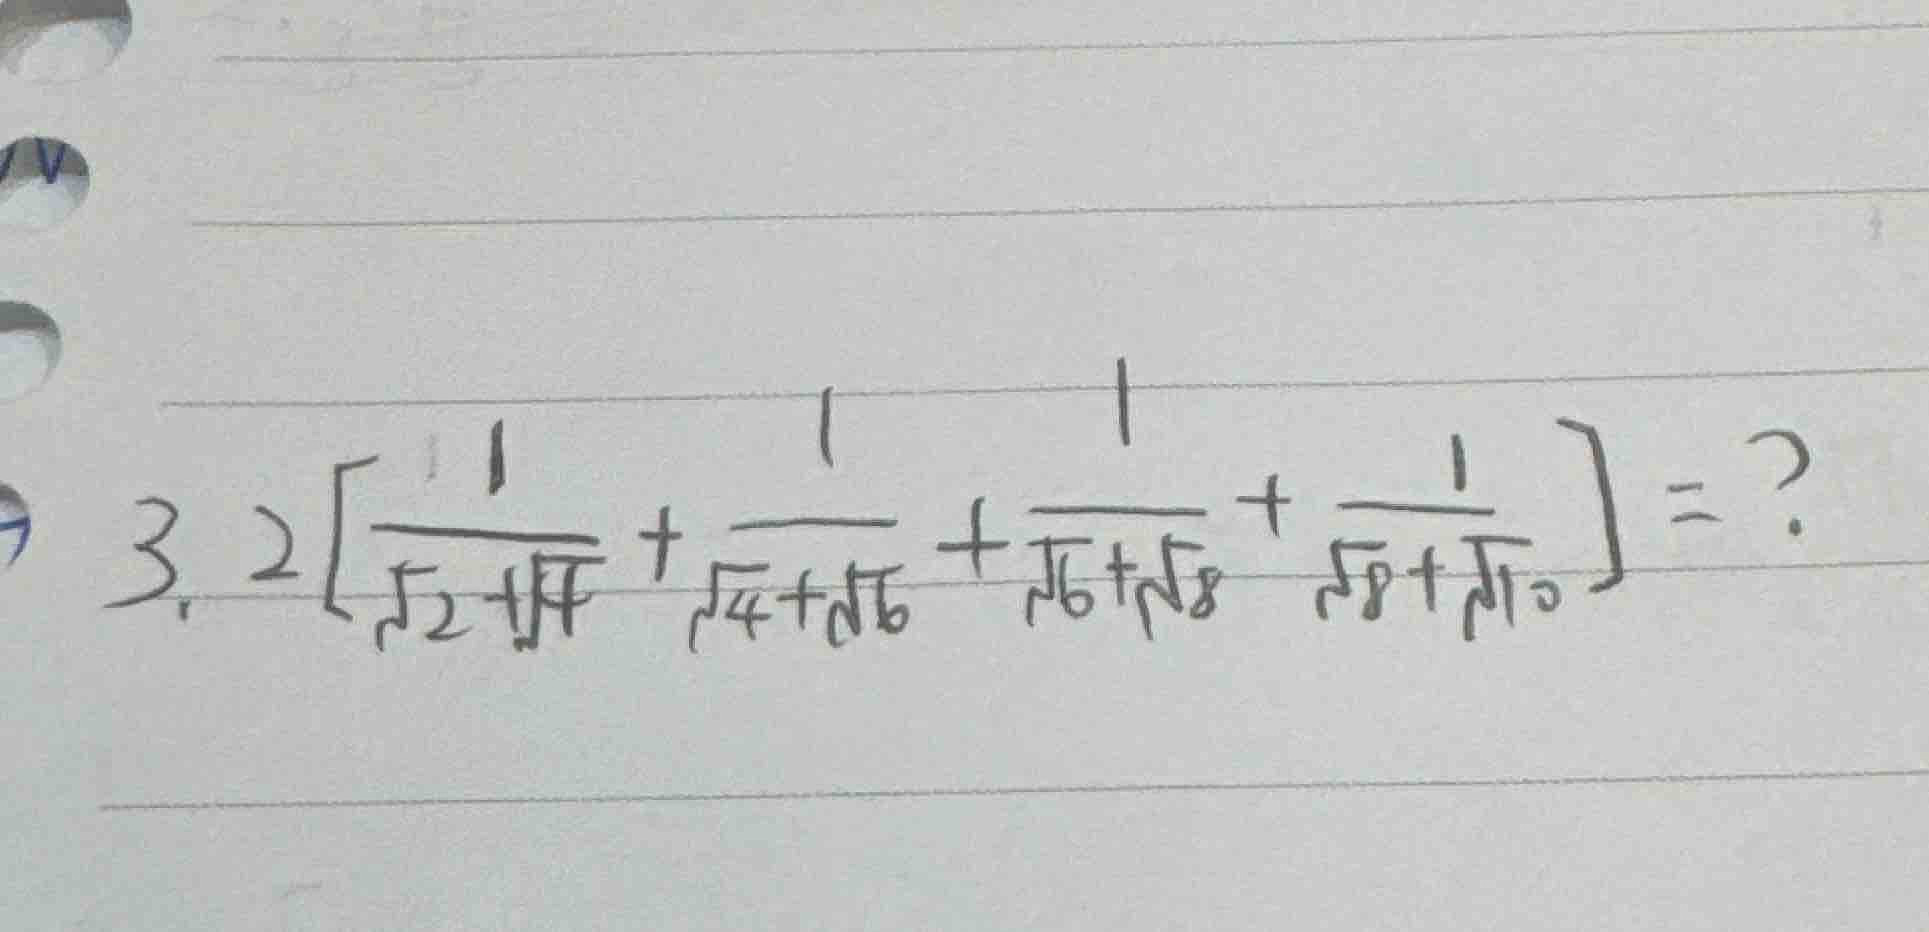 3. 2[1/(√2+√4) + 1/(√4+√6) + 1/(√6+√8) + 1/(√8+√10)] = ?